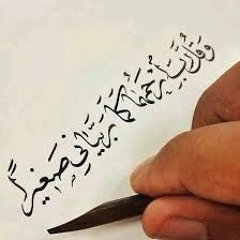 وَقُل رَّبِّ ارْحَمْهُمَا كَمَا رَبَّيَانِي صَغِيرًا